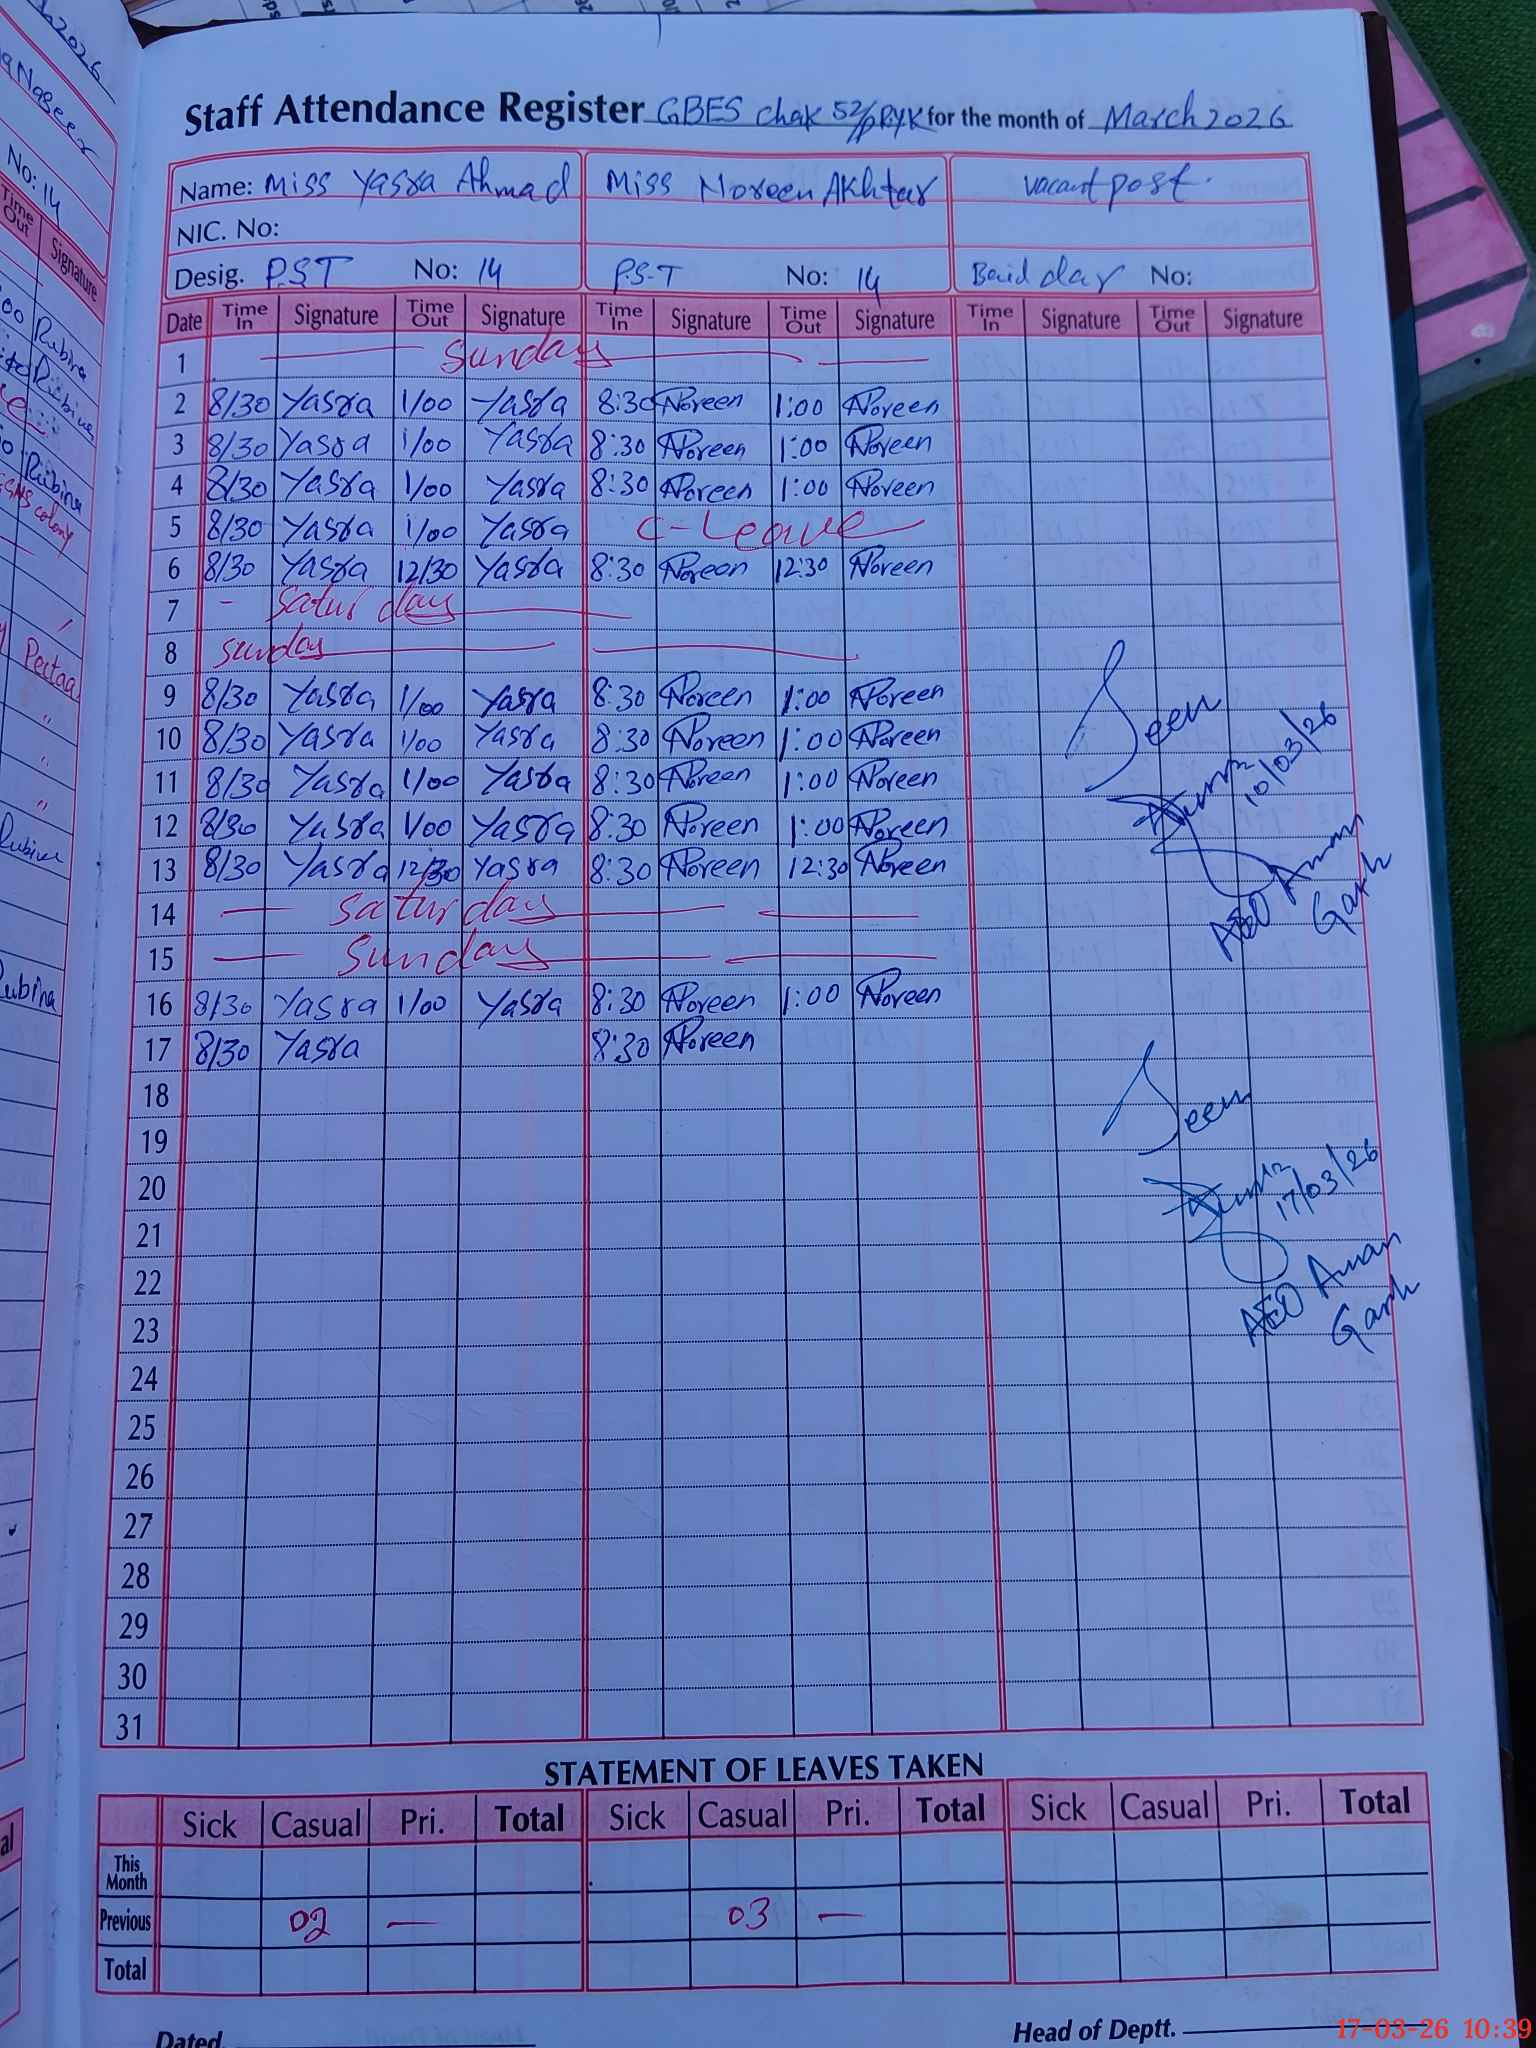 Staff Attendance Register GBES Chak 52/P RYK for the month of March 2026
Name: Miss Yasra Ahmad Miss Noreen Akhtar vacant post.
NIC. No:
Desig. P.S.T No: 14 P.S.T No: 14 day No:
Date Time In Signature Time Out Signature Time In Signature Time Out Signature Time In Signature Time Out Signature
1 Sunday
2 8/30 Yasra 1/00 Yasra 8:30 Noreen 1:00 Noreen
3 8/30 Yasra 1/00 Yasra 8:30 Noreen 1:00 Noreen
4 8/30 Yasra 1/00 Yasra 8:30 Noreen 1:00 Noreen
5 8/30 Yasra 1/00 Yasra C-Leave
6 8/30 Yasra 12/30 Yasra 8:30 Noreen 12:30 Noreen
7 - Saturday
8 Sunday
9 8/30 Yasra 1/00 Yasra 8:30 Noreen 1:00 Noreen
10 8/30 Yasra 1/00 Yasra 8:30 Noreen 1:00 Noreen
11 8/30 Yasra 1/00 Yasra 8:30 Noreen 1:00 Noreen
12 8/30 Yasra 1/00 Yasra 8:30 Noreen 1:00 Noreen
13 8/30 Yasra 12/30 Yasra 8:30 Noreen 12:30 Noreen
14 Saturday
15 Sunday
16 8/30 Yasra 1/00 Yasra 8:30 Noreen 1:00 Noreen
17 8/30 Yasra 8:30 Noreen
18
19
20
21
22
23
24
25
26
27
28
29
30
31
Seen
10/03/26
AEO Aman
Garh
Seen
17/03/26
AEO Aman
Garh
STATEMENT OF LEAVES TAKEN
Sick Casual Pri. Total Sick Casual Pri. Total Sick Casual Pri. Total
This Month
Previous 02 — 03 —
Total
Dated
Head of Deptt.
17-03-26 10:39
2026
No: 14
Time Out Signature
Rubina
Rubina
Rubina
colony
Rubina
Rubina